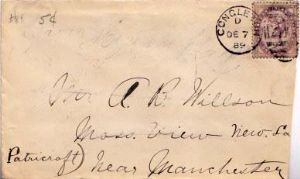 5¢
CONGLE
D
DE 7
89
A. R. Willson
Moss View New. La
Patricroft)
Near Manchester